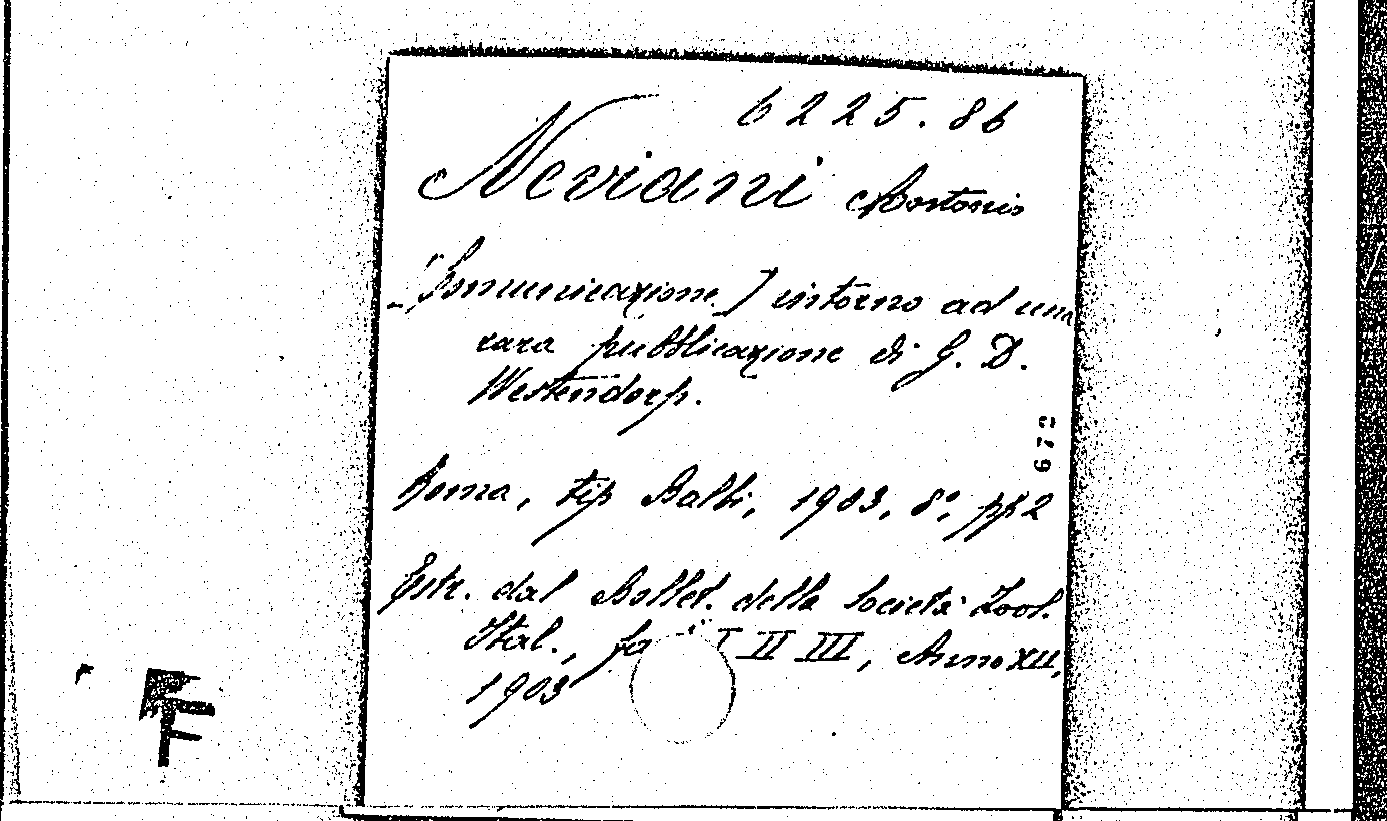 6225.86
Neviani Antonio
[Comunicazione] intorno ad una
rara pubblicazione di G. D.
Westendorp.
672
Roma, tip Balbi, 1903, 8°, pp 2
Estr. dal Bollet. della Società Zool.
Ital., fa I II III, Anno XII,
1903